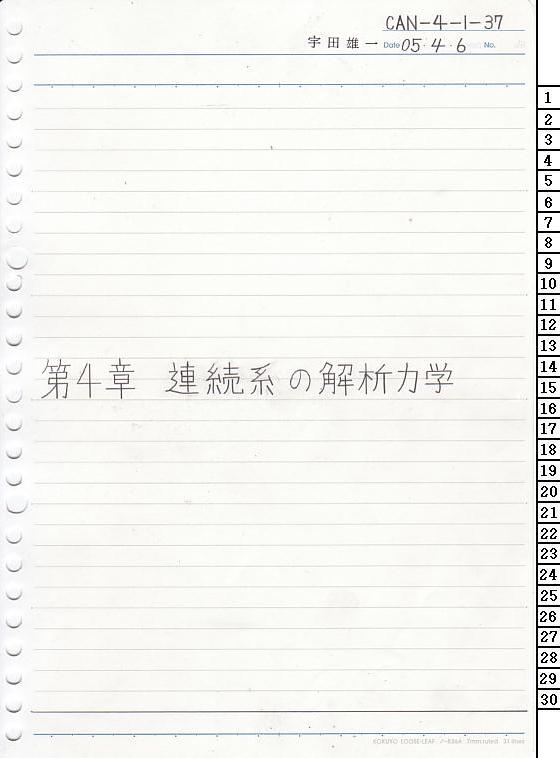 CAN-4-1-37
宇田雄一 Date 05・4・6 No.
第4章 連続系の解析力学
1
2
3
4
5
6
7
8
9
10
11
12
13
14
15
16
17
18
19
20
21
22
23
24
25
26
27
28
29
30
KOKUYO LOOSE-LEAF ノ-836A 7mm ruled 31 lines